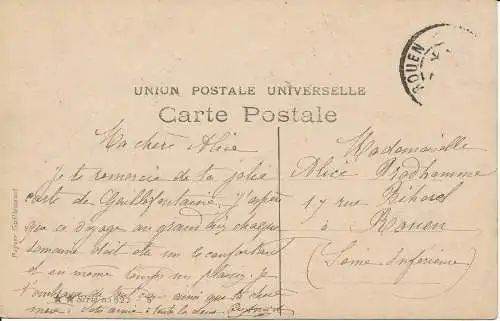 ROUEN
UNION POSTALE UNIVERSELLE
Carte Postale
Ma chère Alice
Je te remercie de ta jolie
carte de Gaillefontaine. J'espère
que ce voyage au grand air chaque
semaine doit être un
et en même temps un plaisir. Je
t'embrasse de tout cœur ainsi que ta chère
mère. Votre amie à toute les deux
Mademoiselle
Alice Prodhomme
17 rue Bihorel
à Rouen
(Seine Inférieure)
Papier Guilleminot
Série no 922 - 5